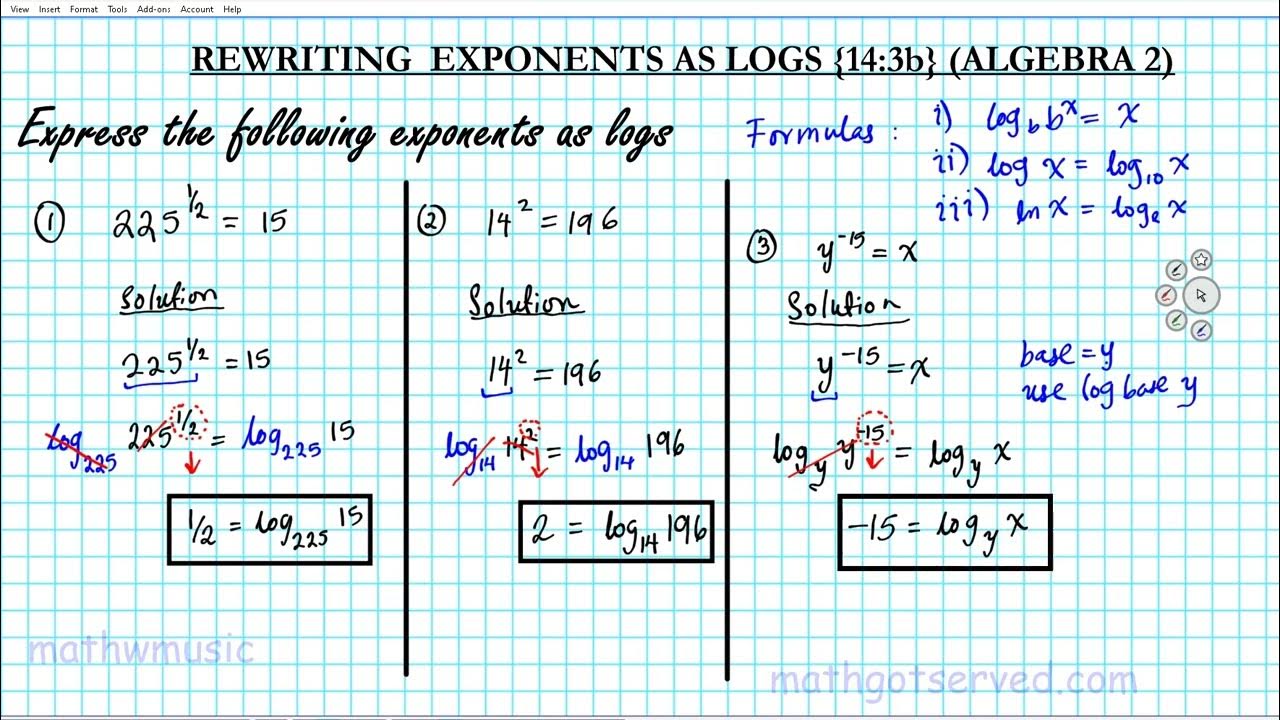 View Insert Format Tools Add-ons Account Help
REWRITING EXPONENTS AS LOGS {14:3b} (ALGEBRA 2)
Express the following exponents as logs
Formulas : i) log_b b^x = x
ii) log x = log_10 x
iii) ln x = log_e x
① 225^1/2 = 15
Solution
225^1/2 = 15
log_225 225^1/2 = log_225 15
1/2 = log_225 15
② 14^2 = 196
Solution
14^2 = 196
log_14 14^2 = log_14 196
2 = log_14 196
③ y^-15 = x
Solution
y^-15 = x
base = y
use log base y
log_y y^-15 = log_y x
-15 = log_y x
mathwmusic
mathgotserved.com